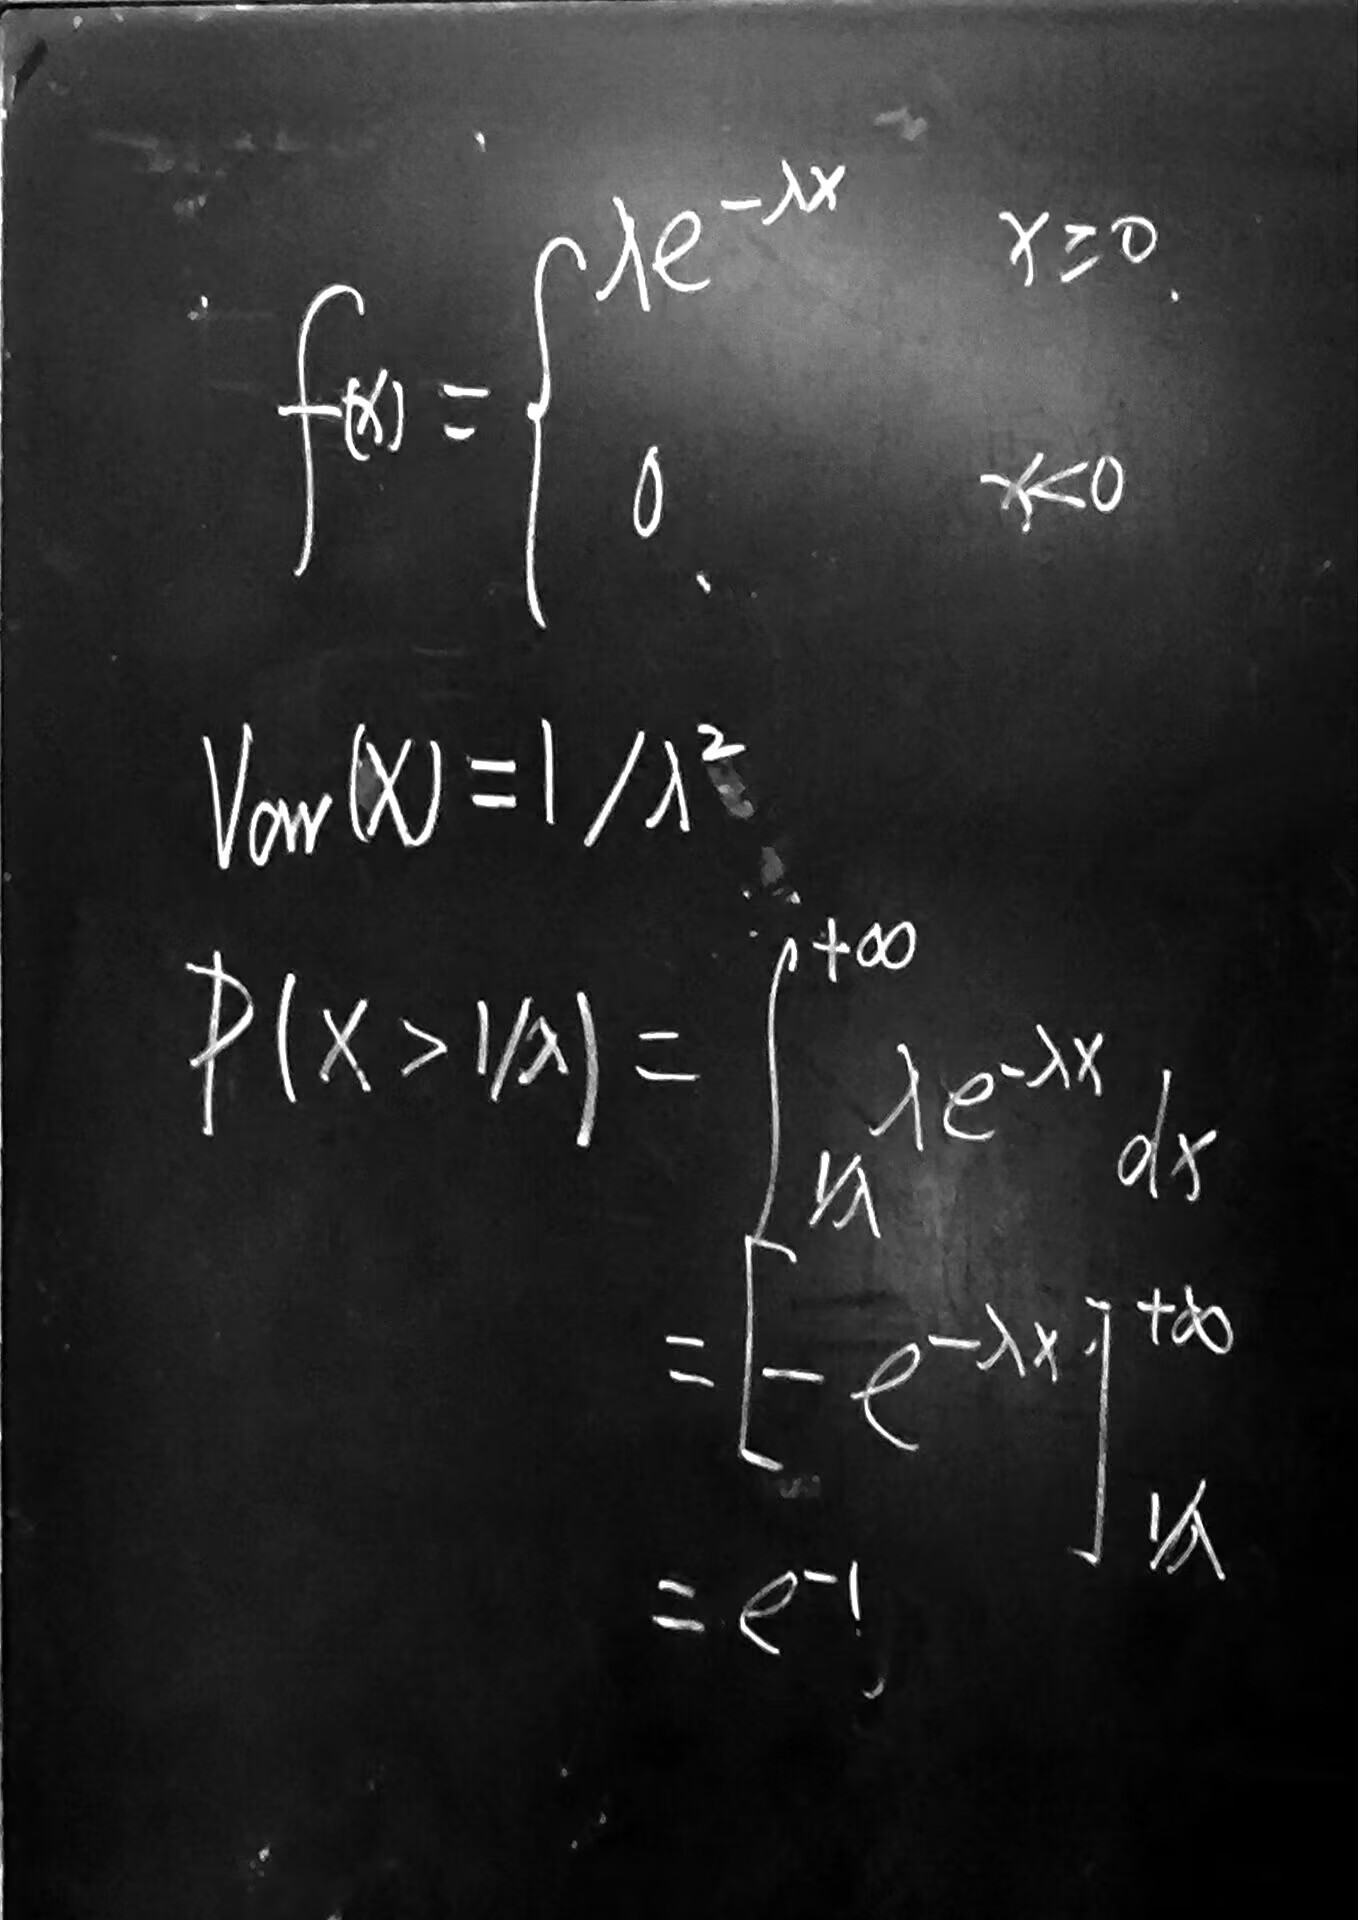 f(x) = { λe^{-λx} x≥0
0 x<0
Var(X) = 1/λ²
P(X > 1/λ) = ∫_{1/λ}^{+∞} λe^{-λx} dx
= [-e^{-λx}]_{1/λ}^{+∞}
= e^{-1}